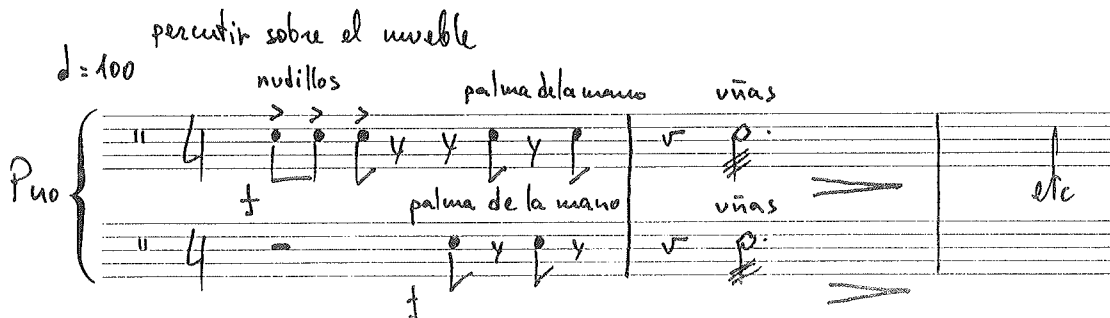 percutir sobre el mueble
♩=100
nudillos palma de la mano uñas
f
Pno
etc
palma de la mano uñas
f